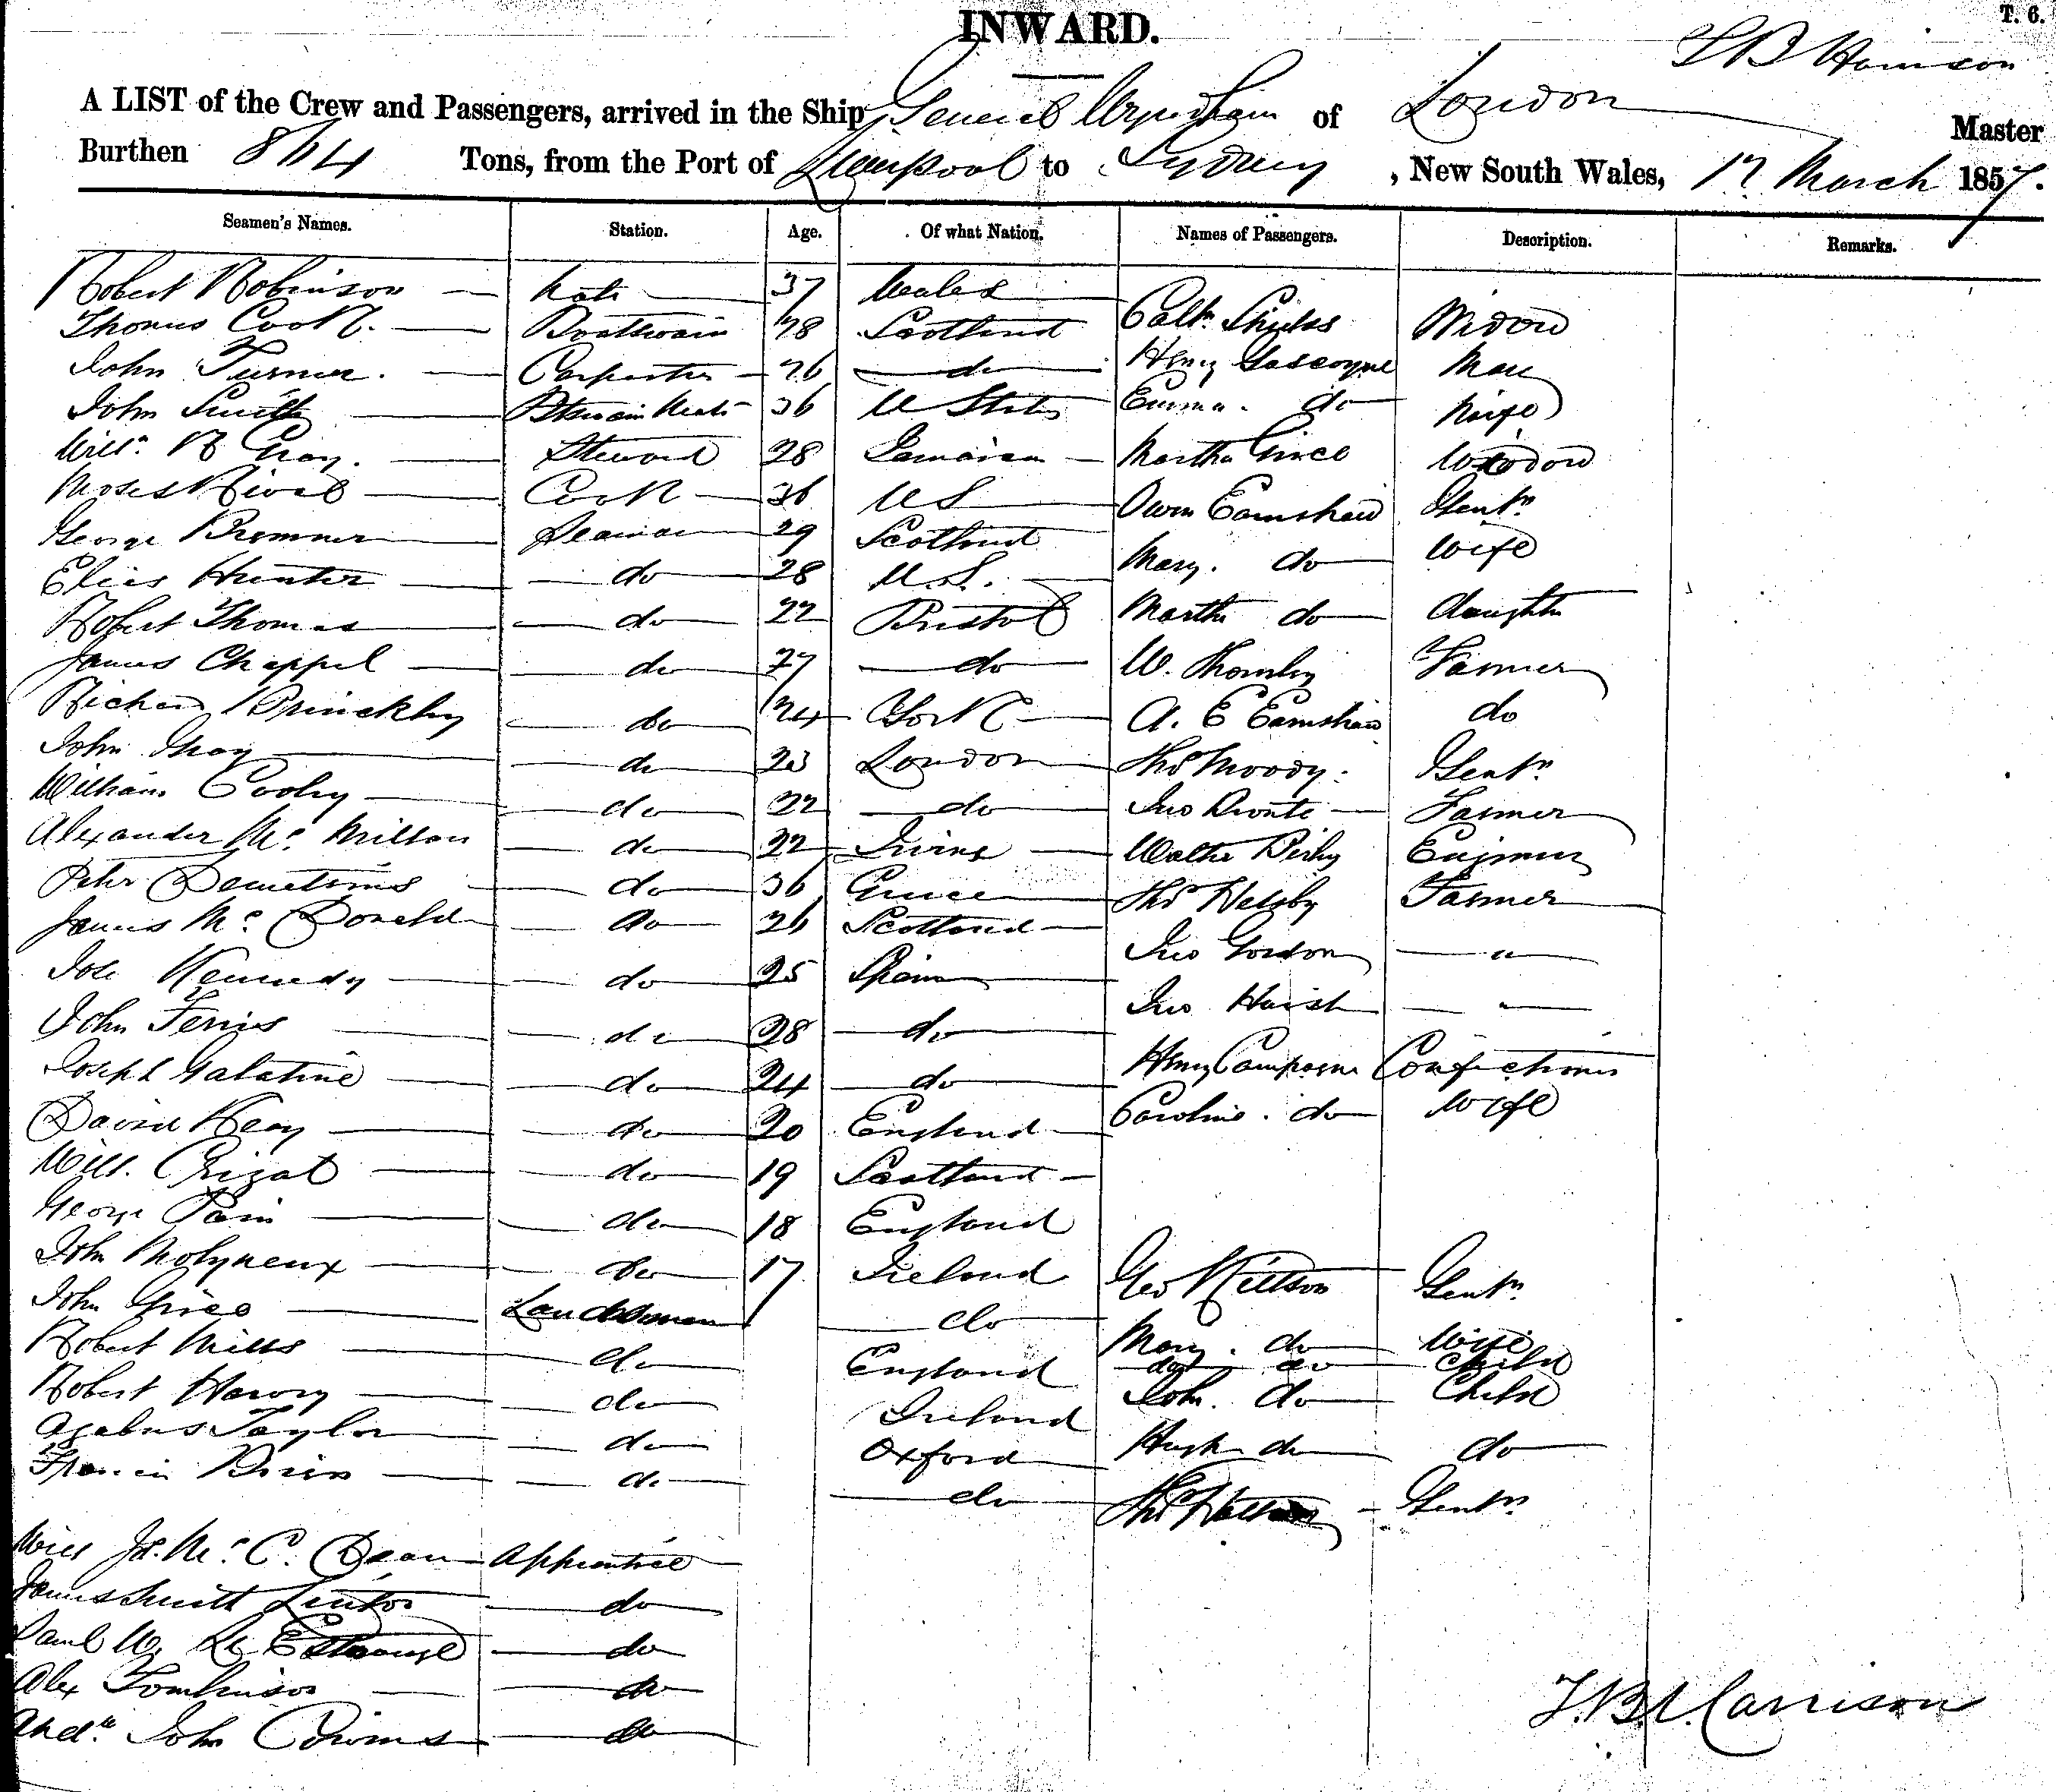 INWARD.
T. 6.
A LIST of the Crew and Passengers, arrived in the Ship General Wyndham of London Master
Burthen 864 Tons, from the Port of Liverpool to Sydney, New South Wales, 17 March 1857.
Seamen's Names. Station. Age. Of what Nation. Names of Passengers. Description. Remarks.
Robert Robinson Mate 37 Wales
Cath. Shields Widow
Thomas Cook Boatswain 28 Scotland
John Turner Carpenter 26 do Henry Gascoyne Man
John Smith Btswain Mate 36 U States Emma do Wife
Willm. R Gray Steward 28 Jamaica Martha Grice Widow
Moses Cook 36 US Owen Earnshaw Gentn.
George Bremner Seaman 29 Scotland
Elias Hunter do 28 U.S. Mary. do Wife
Robert Thomas do 22 Bristol Martha do daughter
James Chappel do 27 do W. Farmer
Richard Brinckley do 24 York A. E Earnshaw do
John Gray do 23 London Thos Moody Gentn.
William Cooley do 22 do Jno Farmer
Alexander Mc. Millan do 22 Irvine Walter Engineer
Peter Demetrius do 36 Greece Thos Helsby Farmer
James Mc. Donald do 26 Scotland
Jno Gordon "
Jose Kennedy do 25 Spain
Jno Haish "
John Ferris do 28 do
Joseph Galatine do 24 do Henry Confectioner
David Keay do 20 England Caroline. do Wife
Will. do 19 Scotland
George Pain do 18 England
John Molyneux do 17 Ireland Geo Gentn.
John Grice Landsman do
Mary. do Wife
Robert Mills do England do do Child
Robert Harvey do Ireland John. do Child
Agabus Taylor do Oxford Hugh do do
Francis do do Thos Gentn.
Will Js. Mc. C. Dean Apprentice
James Smith Linton do
Saml W. Le Estrange do
Alex Tomlinson do
John do
F.B. Harrison